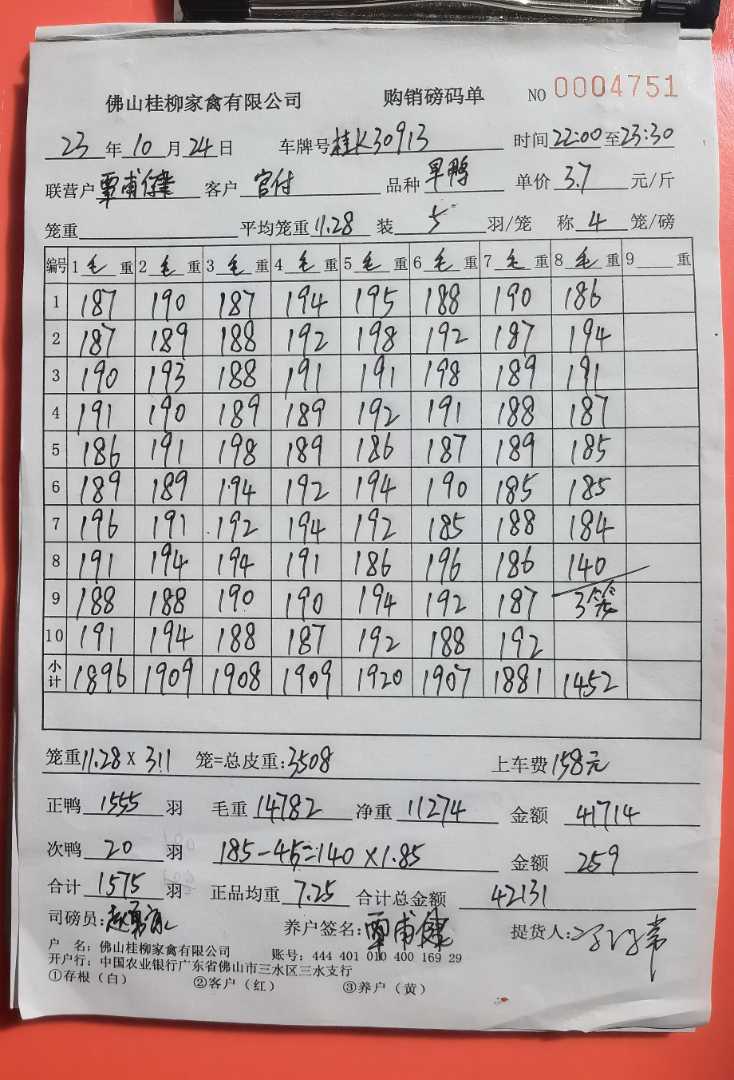 佛山桂柳家禽有限公司 购销磅码单 NO 0004751
23 年 10 月 24 日 车牌号 桂K30913 时间 22:00 至 23:30
联营户 覃甫健 客户 官付 品种 早鸭 单价 3.7 元/斤
笼重 平均笼重 11.28 装 5 羽/笼 称 4 笼/磅
编号 1 毛 重 2 毛 重 3 毛 重 4 毛 重 5 毛 重 6 毛 重 7 毛 重 8 毛 重 9 重
1 187 190 187 194 195 188 190 186
2 187 189 188 192 198 192 187 194
3 190 193 188 191 191 198 189 191
4 191 190 189 189 192 191 188 187
5 186 191 198 189 186 187 189 185
6 189 189 194 192 194 190 185 185
7 196 191 192 194 192 185 188 184
8 191 194 194 191 186 196 186 140
9 188 188 190 190 194 192 187 3笼
10 191 194 188 187 192 188 192
小计 1896 1909 1908 1909 1920 1907 1881 1452
笼重 11.28 X 311 笼=总皮重: 3508 上车费 158元
正鸭 1555 羽 毛重 14782 净重 11274 金额 41714
次鸭 20 羽 185-45=140 X 1.85 金额 259
合计 1575 羽 正品均重 7.25 合计总金额 42131
司磅员: 养户签名: 覃甫健 提货人:
户 名: 佛山桂柳家禽有限公司 账号: 444 401 010 400 169 29
开户行: 中国农业银行广东省佛山市三水区三水支行
①存根（白） ②客户（红） ③养户（黄）